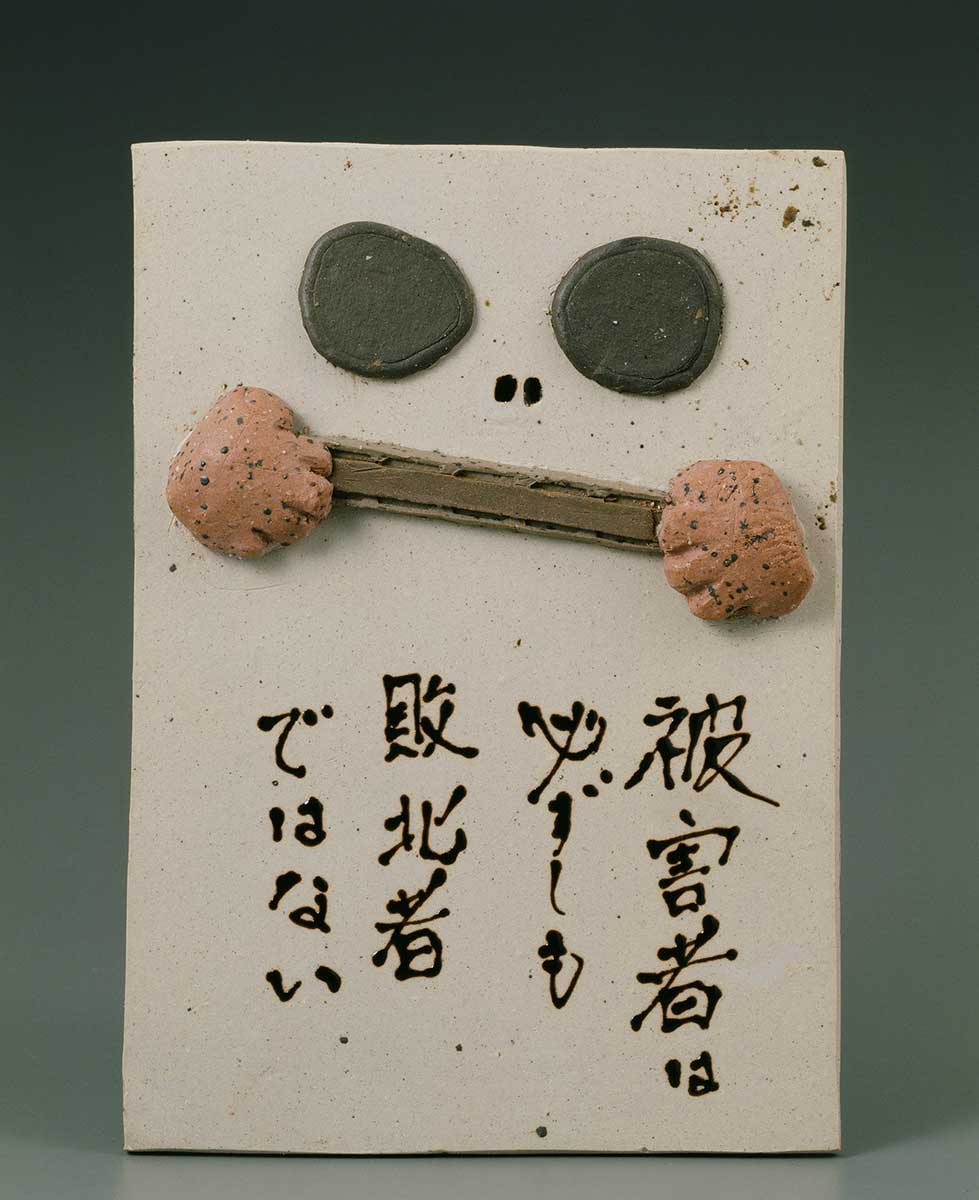 被害者は
必ずしも
敗北者
ではない